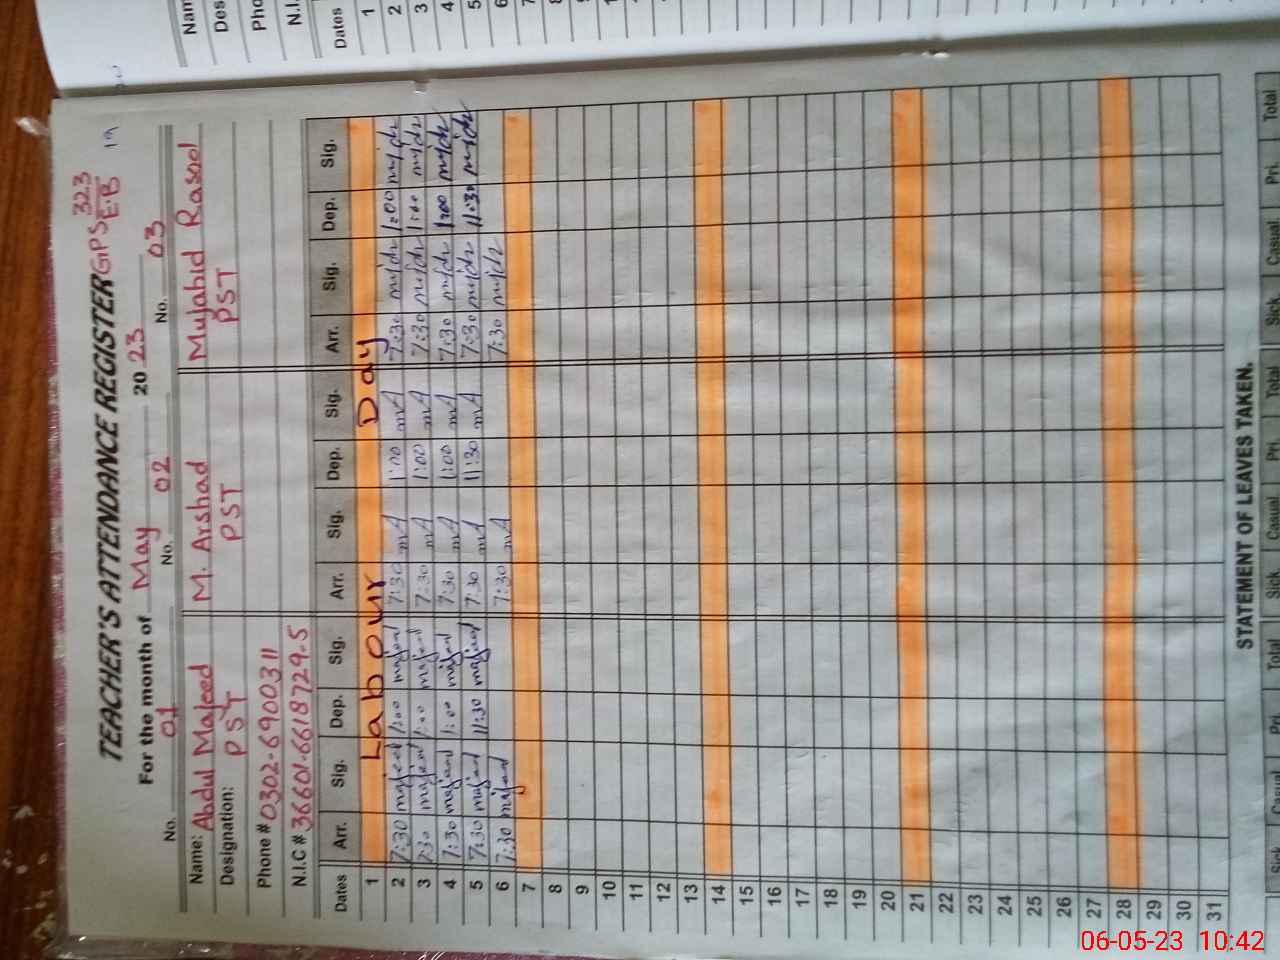 TEACHER'S ATTENDANCE REGISTER GPS 323 E.B
For the month of May 2023
No. 01 No. 02 No. 03
Name: Abdul Majeed M. Arshad Mujahid Rasool
Designation: PST PST PST
Phone # 0302-6900311
N.I.C # 36601-6618729-5
Dates Arr. Sig. Dep. Sig. Arr. Sig. Dep. Sig. Arr. Sig. Dep. Sig.
1 Labour Day
2 7:30 majeed 1:00 majeed 7:30 mA 1:00 mA 7:30 1:00
3 7:30 majeed 1:00 majeed 7:30 mA 1:00 mA 7:30 1:00
4 7:30 majeed 1:00 majeed 7:30 mA 1:00 mA 7:30 1:00
5 7:30 majeed 11:30 majeed 7:30 mA 11:30 mA 7:30 11:30
6 7:30 majeed 7:30 mA 7:30
7
8
9
10
11
12
13
14
15
16
17
18
19
20
21
22
23
24
25
26
27
28
29
30
31
STATEMENT OF LEAVES TAKEN.
Sick Casual Pri Total Sick Casual Pri Total Sick Casual Pri Total
Dates
1
2
3
4
5
6
7
06-05-23 10:42